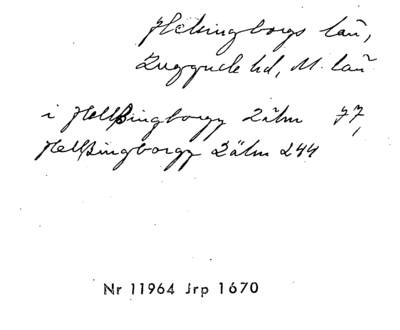 Helsingborgs län,
Luggude hd, M. län
i Hellßingborgz Lähn 77,
Hellßingborgz Lähn 244
Nr 11964 Jrp 1670